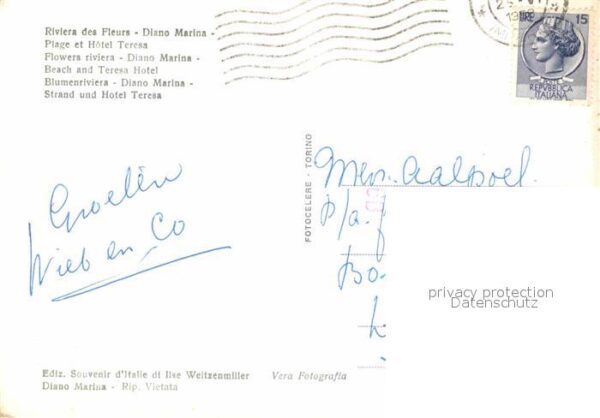 Riviera des Fleurs - Diano Marina -
Plage et Hôtel Teresa
Flowers riviera - Diano Marina -
Beach and Teresa Hotel
Blumenriviera - Diano Marina -
Strand und Hotel Teresa
15
POSTE
REPVBBLICA
ITALIANA
FOTOCELERE - TORINO
Groeten
Wieb en Co
P/a.
Bo
privacy protection
Datenschutz
Ediz. Souvenir d'Italie di Ilse Weitzenmiller
Vera Fotografia
Diano Marina - Rip. Vietata